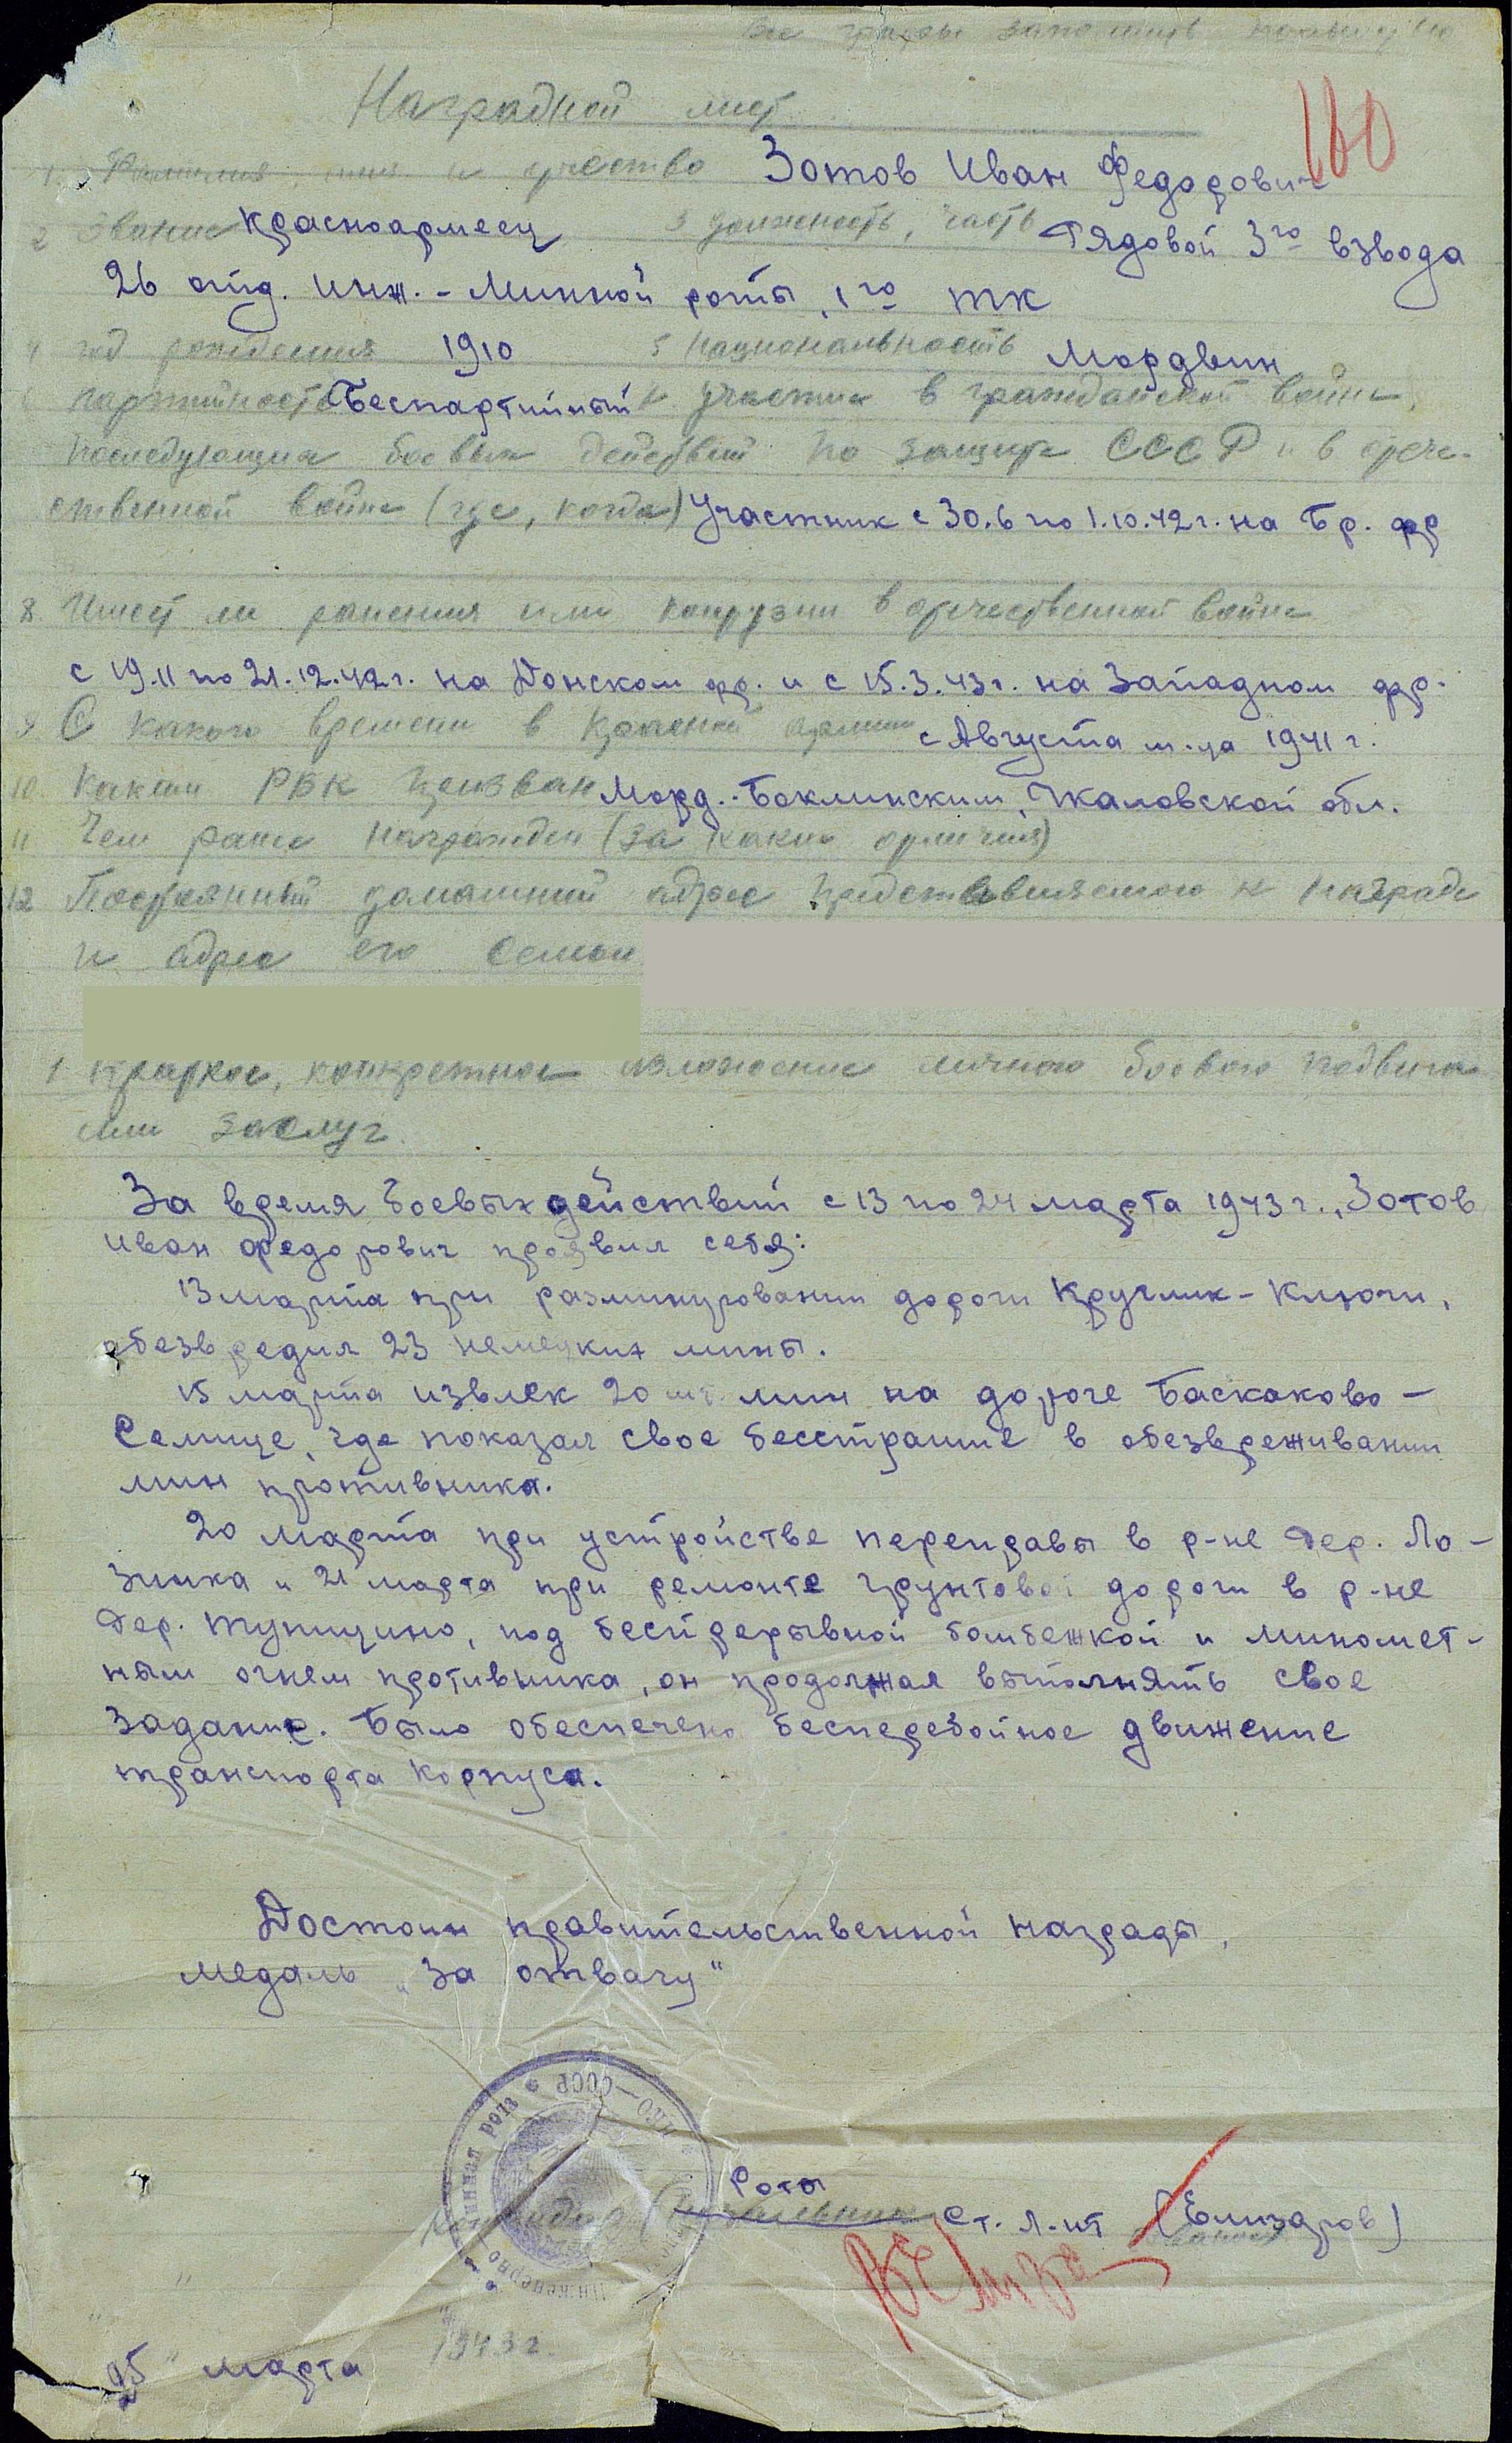 все графы заполнить полностью
Наградной лист
160
1. Фамилия имя и отчество Зотов Иван Федорович
2 Звание Красноармеец 3 должность, часть Рядовой 3го взвода
26 отд. инж.-Минной роты, 1го тк
4 год рождения 1910 5 Национальность Мордвин
6 партийность Беспартийный участие в гражданской войне,
последующих боевых действий по защите СССР и в отече-
ственной войне (где, когда) Участник с 30.6 по 1.10.42 г. на Бр. фр
8. Имеет ли ранения или контузии в отечественной войне
с 19.11 по 21.12.42 г. на Донском фр. и с 15.3.43 г. на Западном фр.
9. С какого времени в Красной армии с Августа м-ца 1941 г.
10. Каким РВК призван Морд.-Боклинским, Чкаловской обл.
11 Чем ранее награжден (за какие отличия)
12 Постоянный домашний адрес представляемого к награде
и адрес его семьи
1 Краткое, конкретное изложение личного боевого подвига
или заслуг.
За время боевых действий с 13 по 24 марта 1943 г., Зотов
Иван Федорович проявил себя:
13 марта при разминировании дороги Круглик-Ключи,
обезвредил 23 немецких мины.
15 марта извлек 20 шт. мин на дороге Баскаково-
Селище, где показал свое бесстрашие в обезвреживании
мин противника.
20 марта при устройстве переправы в р-не дер. Ло-
зинка и 21 марта при ремонте грунтовой дороги в р-не
дер. Тупицино, под беспрерывной бомбежкой и миномет-
ным огнем противника, он продолжал выполнять свое
задание. Было обеспечено бесперебойное движение
транспорта корпуса.
Достоин правительственной награды,
медаль „За отвагу"
НКО-СССР
Роты
Командир (начальник Ст. л-нт (Елизаров)
25 " марта 1943 г.